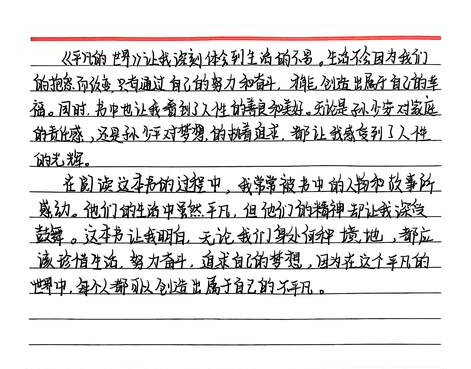 《平凡的世界》让我深刻体会到生活的不易。生活不会因为我们
的抱怨而改变,只有通过自己的努力和奋斗,才能创造出属于自己的幸
福。同时,书中也让我看到了人性的善良和美好。无论是孙少安对家庭
的责任感,还是孙少平对梦想的执着追求,都让我感受到了人性
的光辉。
在阅读这本书的过程中,我常常被书中的人物和故事所
感动。他们的生活中虽然平凡,但他们的精神却让我深受
鼓舞。这本书让我明白,无论我们身处何种境地,都应
该珍惜生活,努力奋斗,追求自己的梦想,因为在这个平凡的
世界中,每个人都可以创造出属于自己的不平凡。